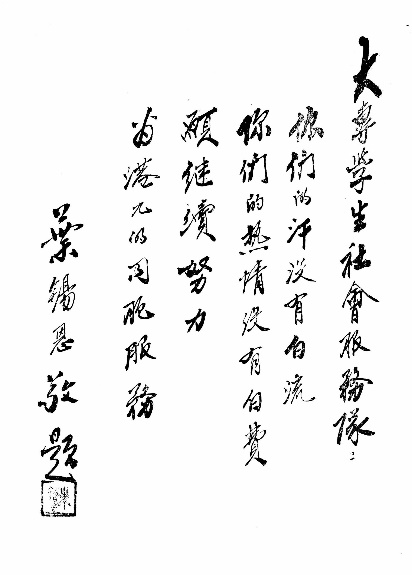 大專學生社會服務隊：
你們的汗沒有白流
你們的熱情沒有白費
願继續努力
為港九的同胞服務
葉錫恩 敬題